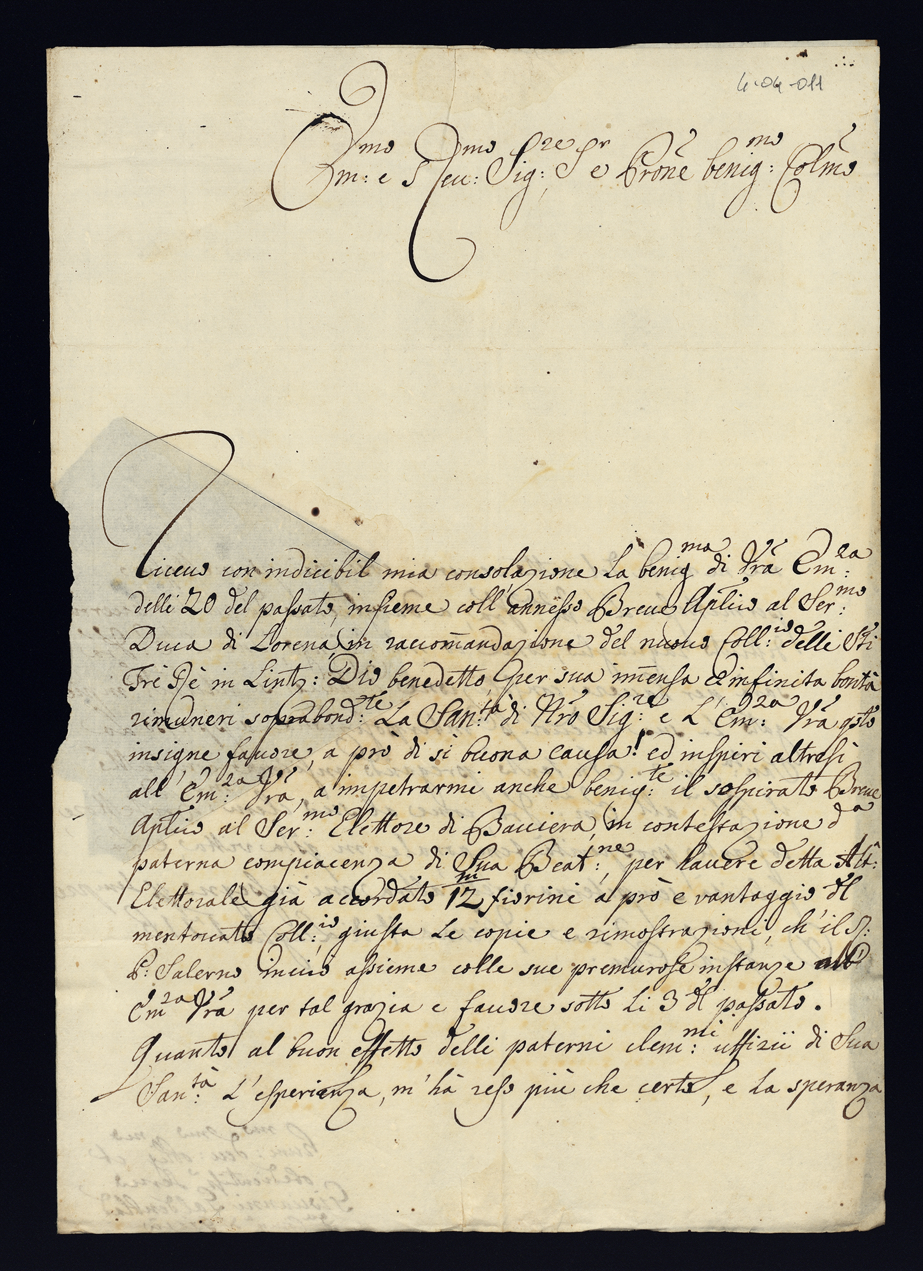 4-04-011
Em:mo e Reu:mo Sig:re Sr e Prone benig:mo Colmo
Riceuo con indicibil mia consolazione La benigma di Vra Em:za
delli 20 del passato, insieme coll'annesso Breue Aplico al Ser:mo
Duca di Lorena, in raccomandazione del nuouo Coll:io delli Sti
Trè Rè in Lintz: Dio benedetto, per sua immensa & infinita bontà
rimuneri soprabond:te La San:tà di Nro Sig:re e L'Em:za Vra qsto
insigne fauore, a prò di si buona causa! ed inspiri altresi
all'Em:za Vra, a impetrarmi anche benig:te il sospirato Breue
Aplico al Ser:mo Elettore di Bauiera, in contestazione da
paterna compiacenza di Sua Beat:ne, per hauere detta Alt:
Elettorale già accordato 12/m fiorini a prò e vantaggio dl
mentouato Coll:io giusta Le copie e rimostrazioni, ch'il R:
P: Salerno inuiò assieme colle sue premurose instanze all'
Emza Vra per tal grazia e fauore sotto Li 3 dl passato.
Quanto al buon effetto delli paterni clem:mi uffizii di Sua
San:tà L'esperienza, m'hà reso più che certo, e La speranza